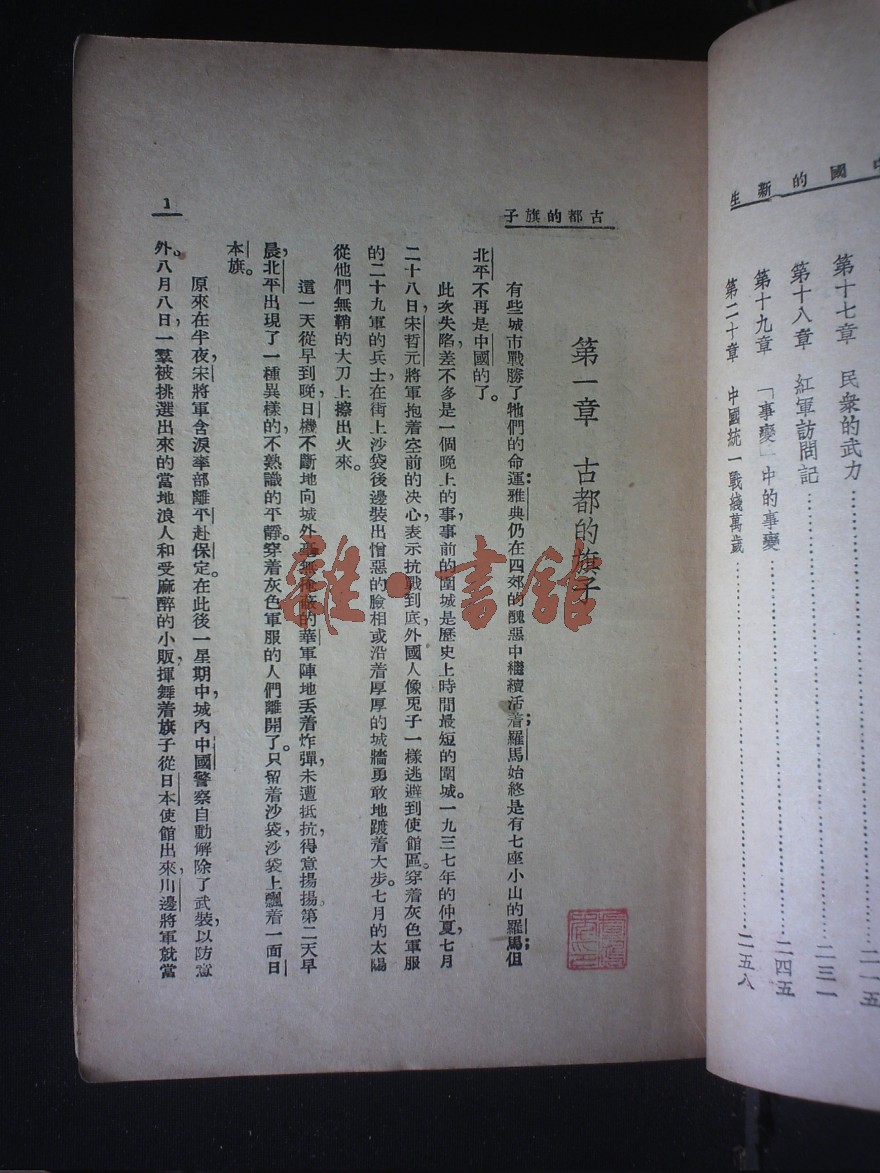 中國的新生
第十七章 民衆的武力 二一五
第十八章 紅軍訪問記 二三一
第十九章 「事變」中的事變 二四五
第二十章 中國統一戰綫萬歲 二五八
古都的旗子
第一章 古都的旗子
有些城市戰勝了牠們的命運；雅典仍在四郊的醜惡中繼續活着；羅馬始終是有七座小山的羅馬；但
北平不再是中國的了。
此次失陷，差不多是一個晚上的事，事前的圍城是歷史上時間最短的圍城。一九三七年的仲夏，七月
二十八日，宋哲元將軍抱着空前的决心，表示抗戰到底，外國人像兎子一樣逃避到使館區。穿着灰色軍服
的二十九軍的兵士，在街上沙袋後邊裝出憎惡的臉相，或沿着厚厚的城牆勇敢地踱着大步。七月的太陽
從他們無鞘的大刀上擦出火來。
這一天從早到晚，日機不斷地向城外毫無掩蔽的華軍陣地丢着炸彈，未遭抵抗，得意揚揚。第二天早
晨，北平出現了一種異樣的，不熟識的平靜。穿着灰色軍服的人們離開了。只留着沙袋，沙袋上飄着一面日
本旗。
原來在半夜，宋將軍含淚率部離平赴保定。在此後一星期中，城內中國警察自動解除了武裝，以防意
外。八月八日，一羣被挑選出來的當地浪人和受麻醉的小販，揮舞着旗子從日本使館出來，川邊將軍就當
1
雜·書館